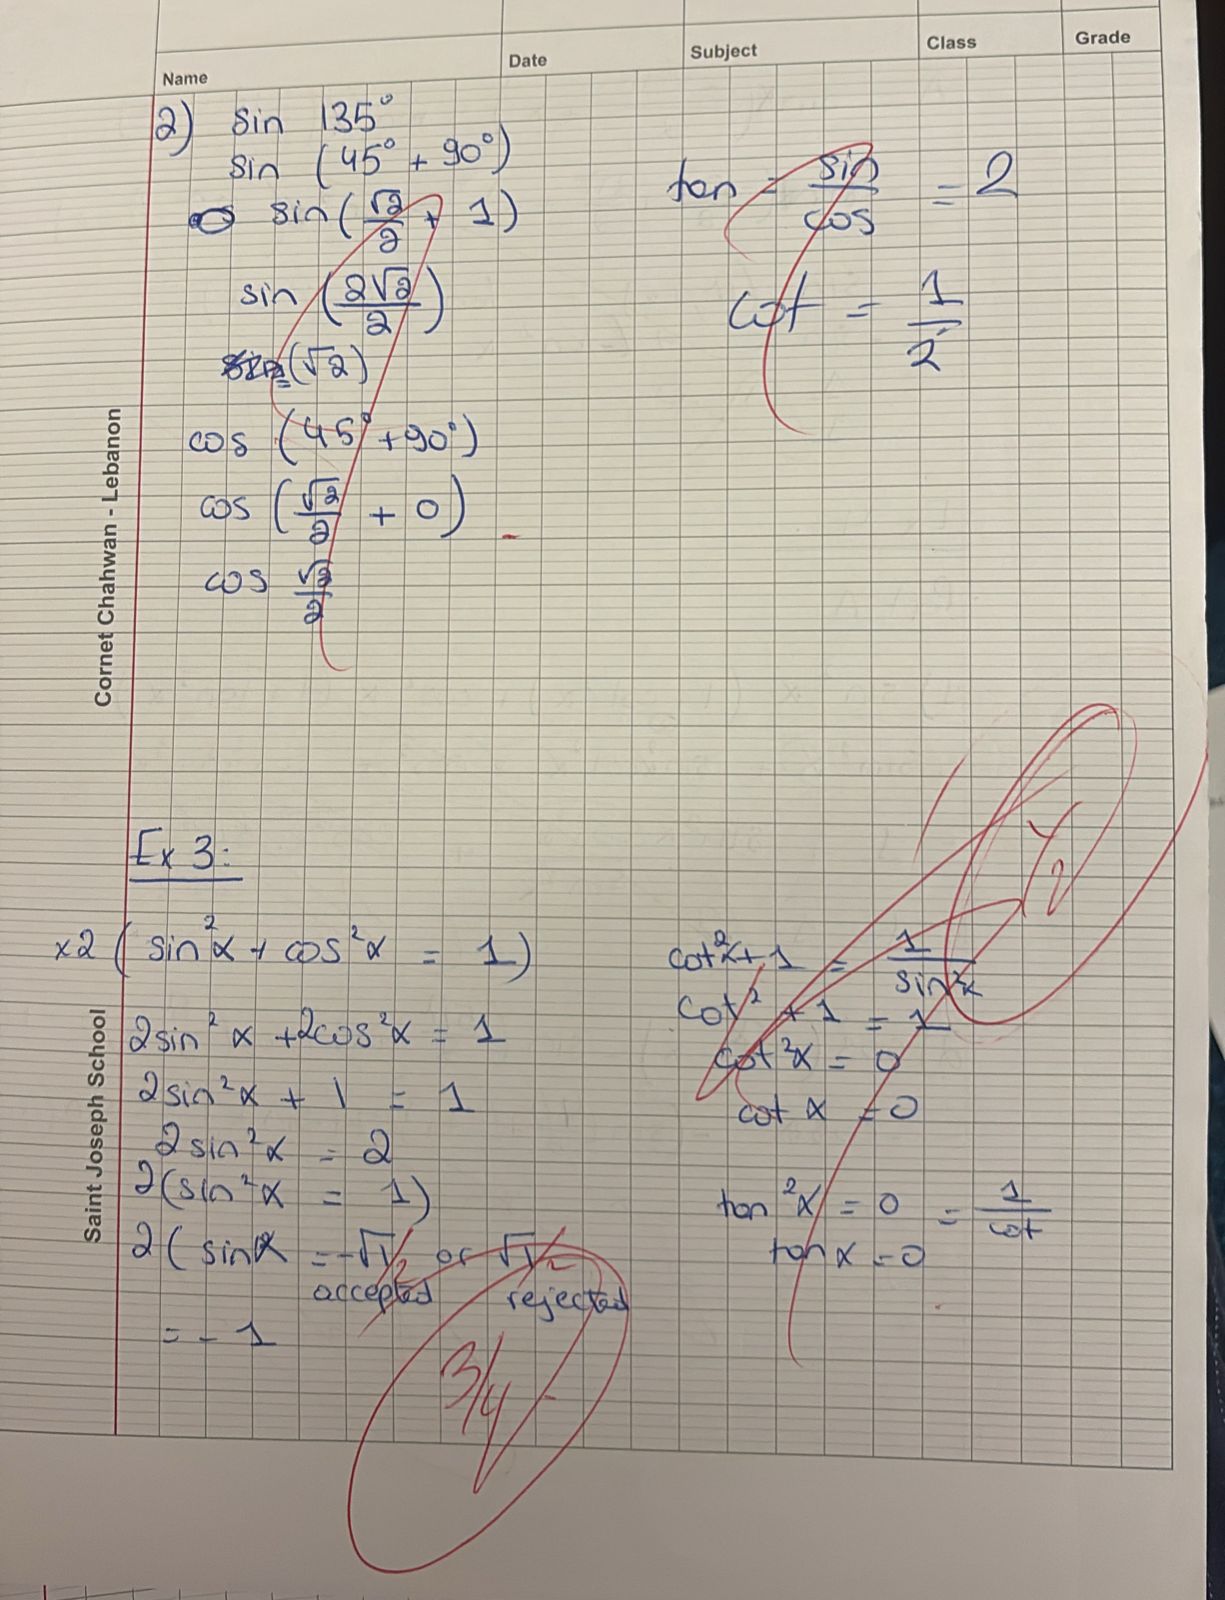 Name Date Subject Class Grade
2) sin 135°
sin (45° + 90°)
sin(√2/2 + 1)
sin (2√2/2)
(√2)
cos (45° + 90°)
cos (√2/2 + 0)
cos √2/2
tan = sin/cos = 2
cot = 1/2
Cornet Chahwan - Lebanon
Ex 3:
x2 ( sin²α + cos²α = 1)
2sin²α + 2cos²α = 1
2sin²α + 1 = 1
2sin²α = 2
2(sin²α = 1)
2( sinα = -√1 or √1
accepted rejected
= - 1
3/4
cot²α + 1 = 1/sin²α
cot² + 1 = 1
cot²α = 0
cot α = 0
tan²α = 0 = 1/cot
tan α = 0
Saint Joseph School